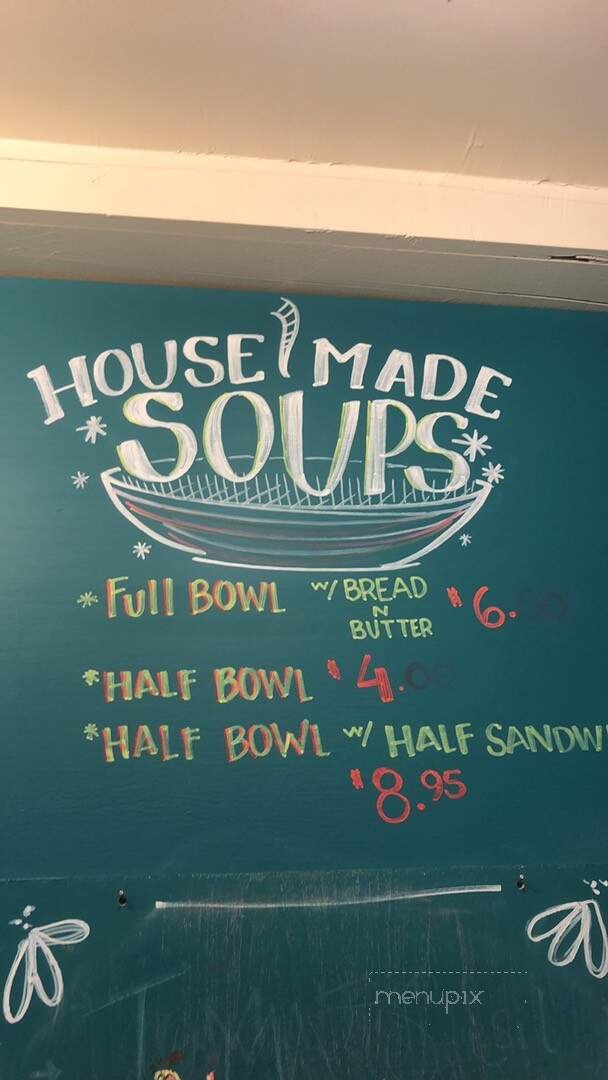 HOUSE MADE
SOUPS
* Full BOWL w/ BREAD N BUTTER $6.00
* HALF BOWL $4.00
* HALF BOWL w/ HALF SANDW
$8.95
menupix